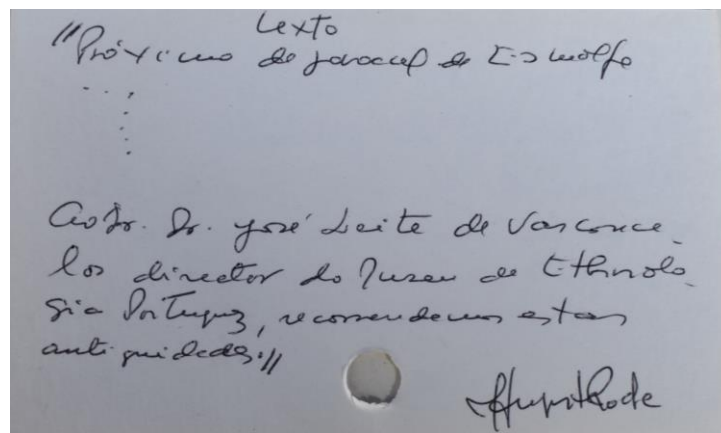 Texto
"Próximo do                de Esmolfe
. . . ,
Ao Sr. Dr. José Leite de Vasconce-
los director do Museu de Ethnolo-
gia Portuguez, recomendamos estas
antiguidades."